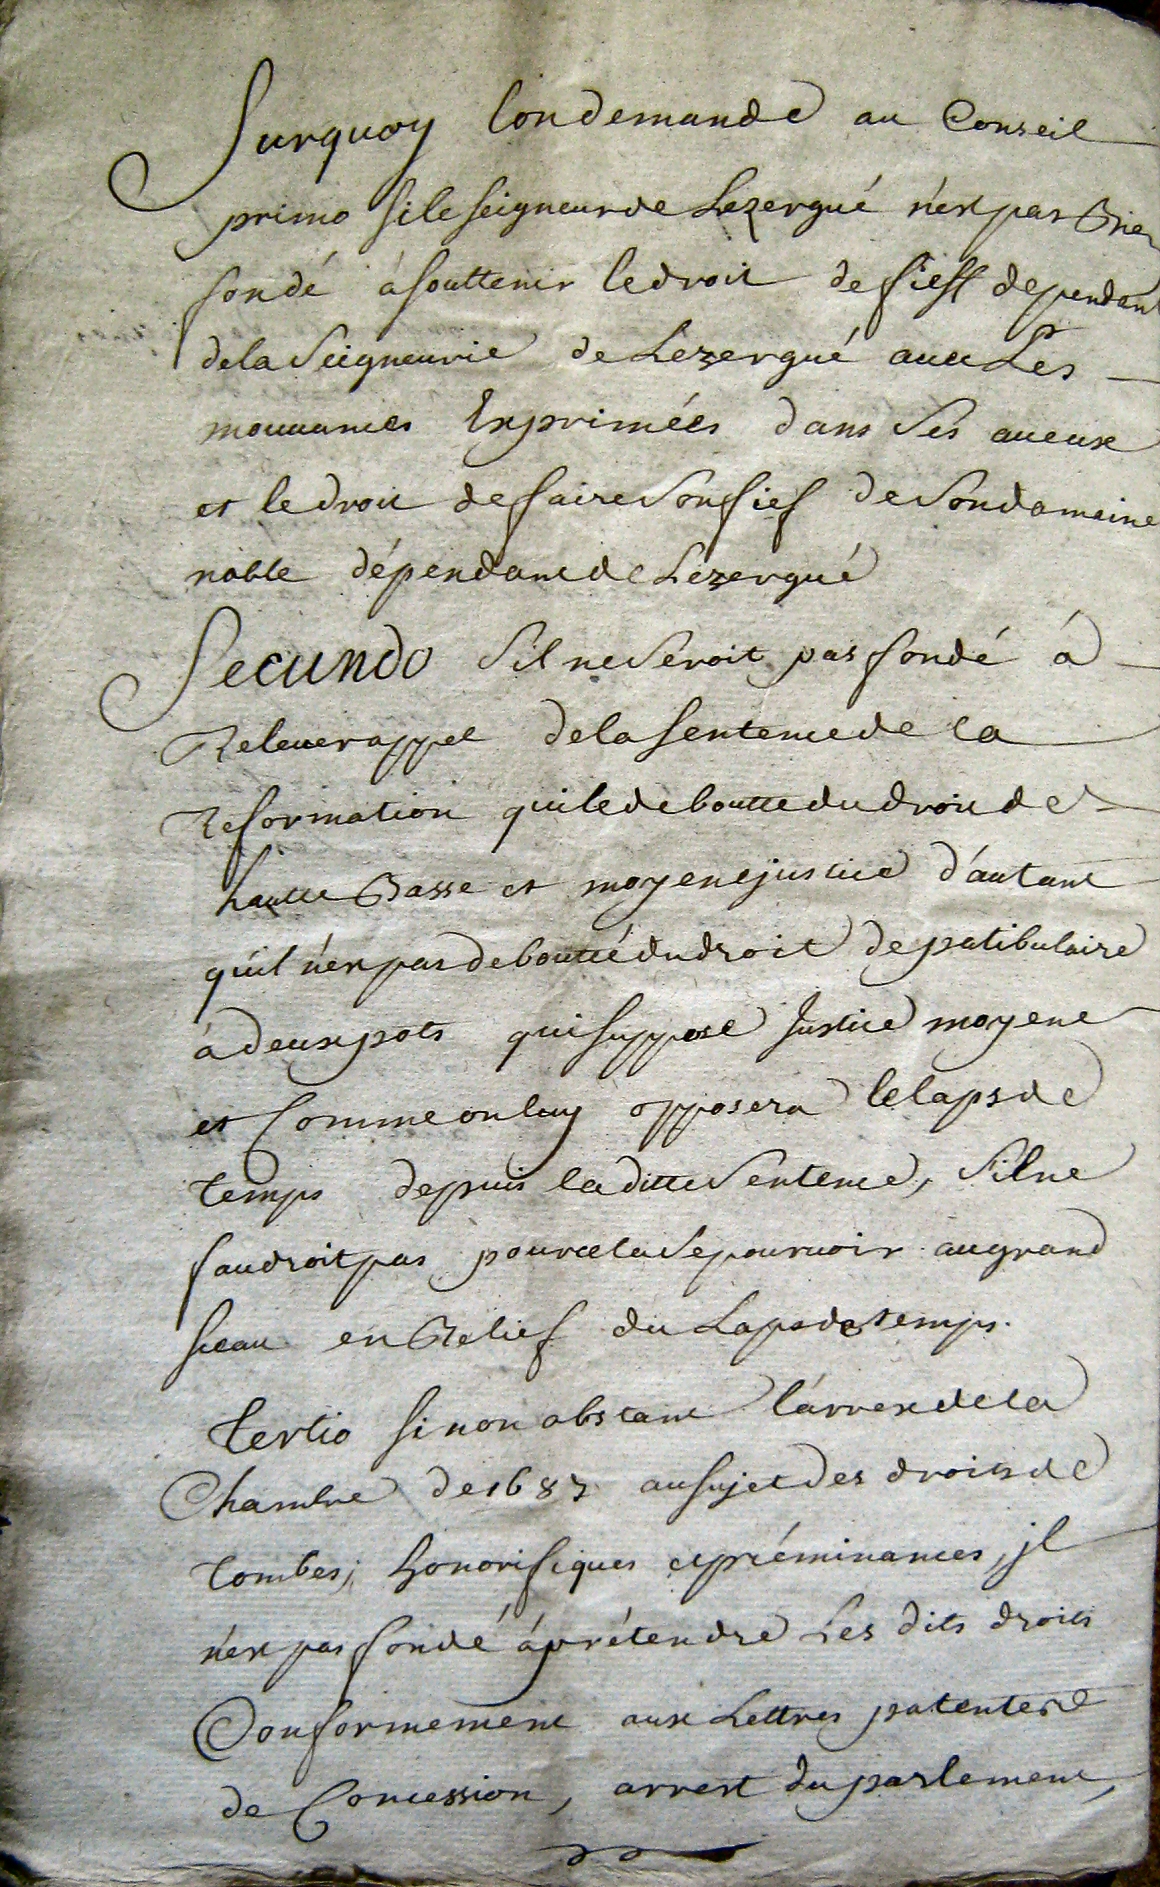 Surquoy londemande au Conseil
primo sileseigneurde Lezergué n'est pas Bien
fondé a souttenir ledroit de fieff dependant
dela Seigneurie de Lezergué avec Les
mouvances Exprimées dans Ses aveux
et ledroit defaire Son fief de Sondomaine
noble dépendant de Lezergué
Secundo Sil ne Seroit pas fondé á
Relever appel dela Sentence de la
Reformation qui le deboutte du droit de
hautte Basse et moyene justice d'autant
quil n'est pas deboutté du droit de patibulaire
a deux pots qui suppose Justice moyene
et Comme on luy opposera le laps de
temps depuis la ditte Sentence, Sil ne
faudroit pas pour cela Se pourvoir au grand
sceau en Relief du Laps de temps.
tertio si non obstant l'arrest de la
Chambre de 1683 au sujet des droits de
tombes, honorifiques et préminances, jl
n'est pas fondé á prétendre Les dits droits
Conformement aux Lettres patentes
de Concession, arrest du parlement,